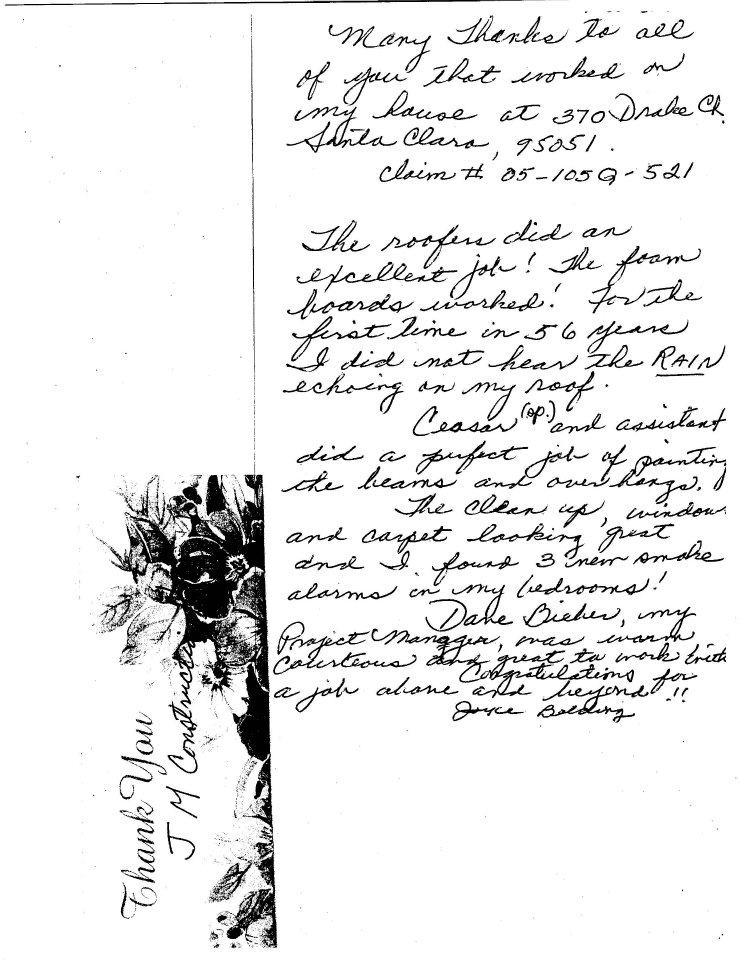 Many Thanks to all
of you that worked on
my house at 370 Drake Ct.
Santa Clara, 95051.
Claim # 05-105Q-521
The roofers did an
excellent job! The foam
boards worked! For the
first time in 56 years
I did not hear the RAIN
echoing on my roof.
Ceasar (sp.) and assistant
did a perfect job of painting
the beams and over hangs.
The clean up, window
and carpet looking great
and I found 3 new smoke
alarms in my bedrooms!
Dave Bieber, my
Project Manager, was warm
courteous and great to work with
Congratulations for
a job above and beyond!!
Joyce Belding
Thank You
J M Construction